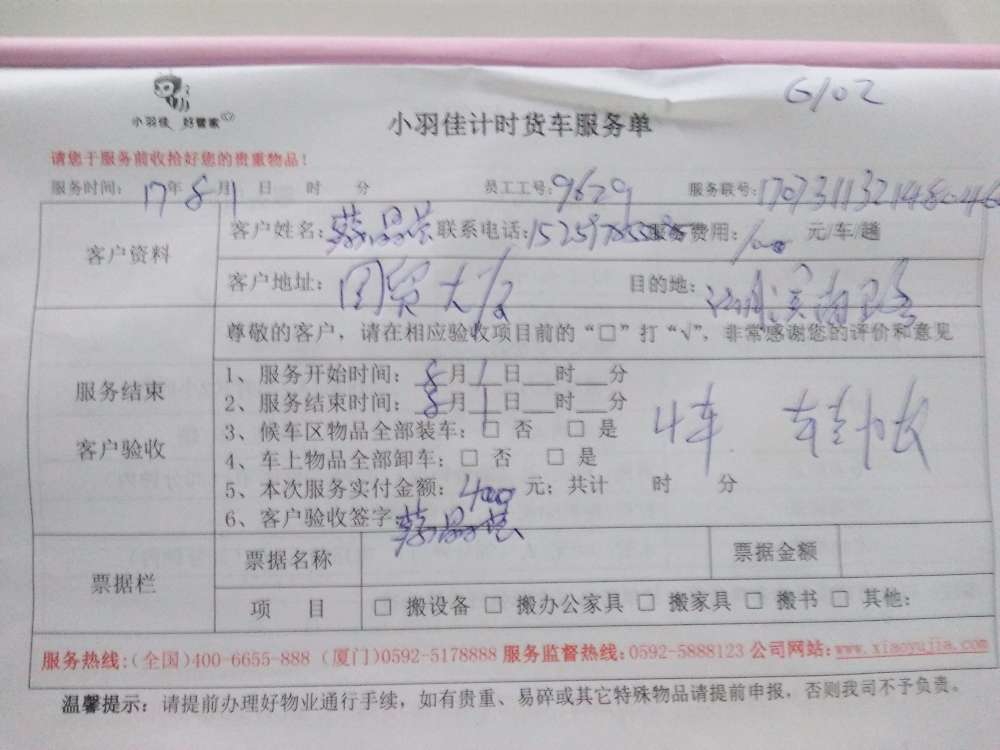 G102
小羽佳 好管家
小羽佳计时货车服务单
请您于服务前收拾好您的贵重物品！
服务时间： 17年8月1日 时 分 员工工号：9629 服务联号：
客户资料
客户姓名： 联系电话： 服务费用：100 元/车/趟
客户地址：国贸大厦 目的地：
尊敬的客户，请在相应验收项目前的“□”打“√”，非常感谢您的评价和意见
服务结束
客户验收
1、服务开始时间：8月1日___时___分
2、服务结束时间：8月1日___时___分
3、候车区物品全部装车：□ 否 □ 是
4车 转帐
4、车上物品全部卸车：□ 否 □ 是
5、本次服务实付金额：400元；共计 时 分
6、客户验收签字
票据栏
票据名称 票据金额
项 目 □ 搬设备 □ 搬办公家具 □ 搬家具 □ 搬书 □ 其他：
服务热线：(全国)400-6655-888 (厦门)0592-5178888 服务监督热线：0592-5888123 公司网站：www.xiaoyujia.com
温馨提示：请提前办理好物业通行手续，如有贵重、易碎或其它特殊物品请提前申报，否则我司不予负责。